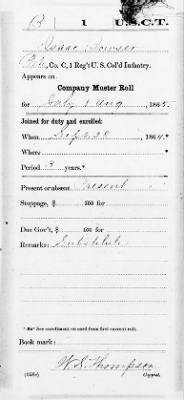 B | 1 | U.S.C.T.
Isaac Bowser
Pvt, Co. C, 1 Reg't U. S. Col'd Infantry.
Appears on
Company Muster Roll
for July & Aug, 1865.
Joined for duty and enrolled:
When Sept 28, 1864.*
Where *
Period 3 years.*
Present or absent Present
Stoppage, $ 100 for
Due Gov't, $ 100 for
Remarks: Substitute
Book mark:
W. S. Thompson
Copyist.